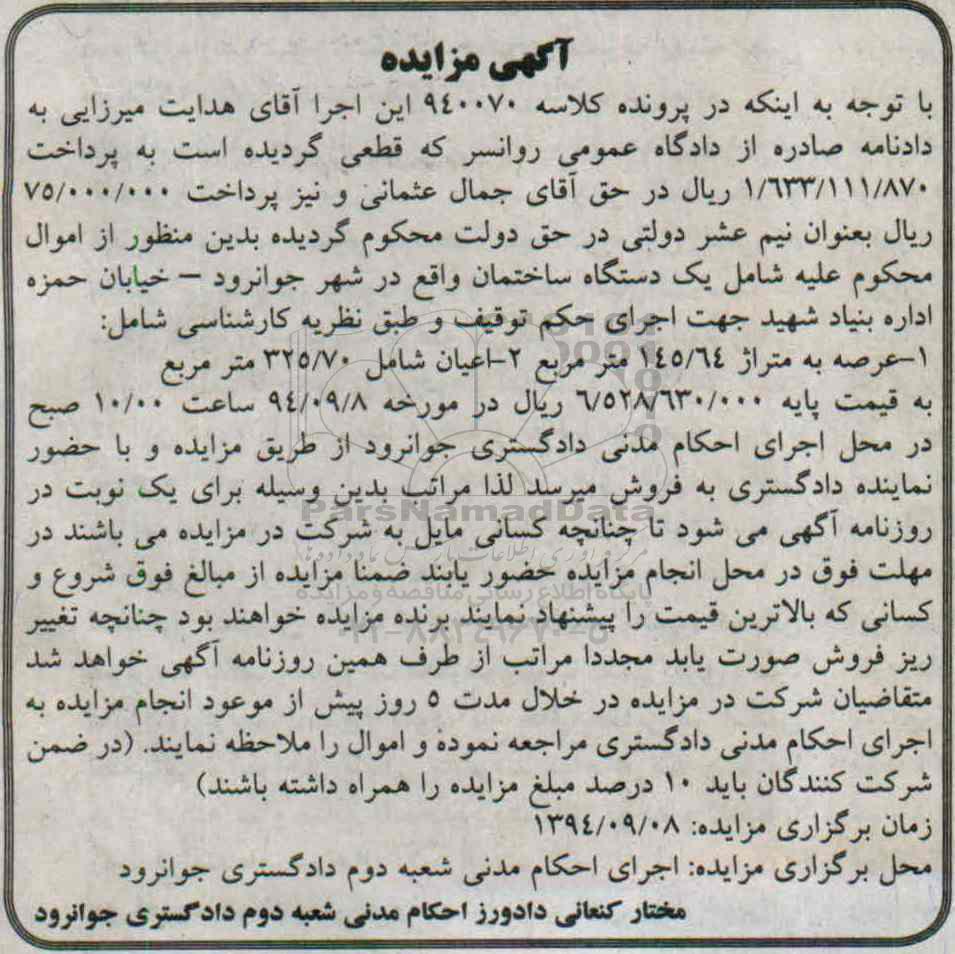 آگهی مزایده
با توجه به اینکه در پرونده کلاسه ۹٤۰۰۷۰ این اجرا آقای هدایت میرزایی به
دادنامه صادره از دادگاه عمومی روانسر که قطعی گردیده است به پرداخت
۱/٦۳۳/۱۱۱/۸۷۰ ریال در حق آقای جمال عثمانی و نیز پرداخت ۷٥/۰۰۰/۰۰۰
ریال بعنوان نیم عشر دولتی در حق دولت محکوم گردیده بدین منظور از اموال
محکوم علیه شامل یک دستگاه ساختمان واقع در شهر جوانرود – خیابان حمزه
اداره بنیاد شهید جهت اجرای حکم توقیف و طبق نظریه کارشناسی شامل:
۱-عرصه به متراژ ۱٤٥/٦٤ متر مربع ۲-اعیان شامل ۳۲٥/۷۰ متر مربع
به قیمت پایه ٦/٥۲۸/٦۳۰/۰۰۰ ریال در مورخه ۹٤/۰۹/۸ ساعت ۱۰/۰۰ صبح
در محل اجرای احکام مدنی دادگستری جوانرود از طریق مزایده و با حضور
نماینده دادگستری به فروش میرسد لذا مراتب بدین وسیله برای یک نوبت در
روزنامه آگهی می شود تا چنانچه کسانی مایل به شرکت در مزایده می باشند در
مهلت فوق در محل انجام مزایده حضور یابند ضمنا مزایده از مبالغ فوق شروع و
کسانی که بالاترین قیمت را پیشنهاد نمایند برنده مزایده خواهند بود چنانچه تغییر
ریز فروش صورت یابد مجددا مراتب از طرف همین روزنامه آگهی خواهد شد
متقاضیان شرکت در مزایده در خلال مدت ٥ روز پیش از موعود انجام مزایده به
اجرای احکام مدنی دادگستری مراجعه نموده و اموال را ملاحظه نمایند. (در ضمن
شرکت کنندگان باید ۱۰ درصد مبلغ مزایده را همراه داشته باشند)
زمان برگزاری مزایده: ۱۳۹٤/۰۹/۰۸
محل برگزاری مزایده: اجرای احکام مدنی شعبه دوم دادگستری جوانرود
مختار کنعانی دادورز احکام مدنی شعبه دوم دادگستری جوانرود
ParsNamadData
پایگاه اطلاع رسانی مناقصه و مزایده